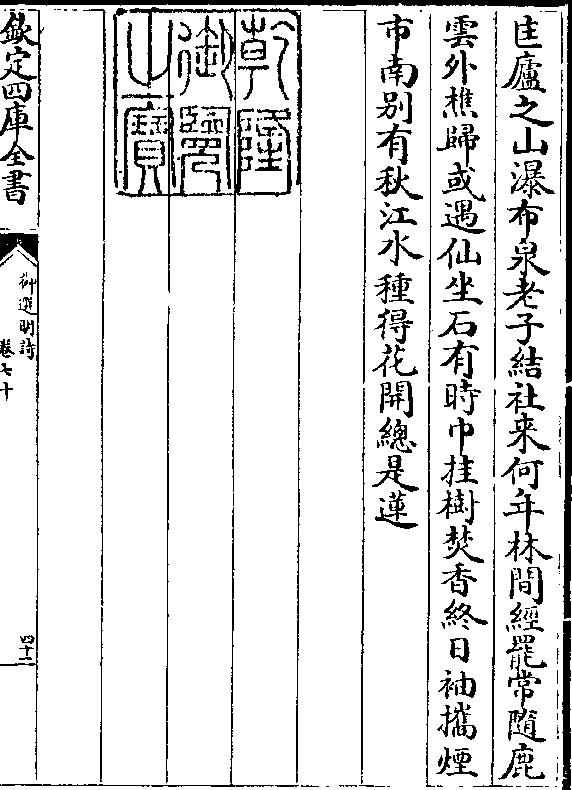 匡廬之山瀑布泉老子結社来何年林間經罷常隨鹿
雲外樵歸或遇仙坐石有時巾挂樹焚香終日袖攜煙
市南别有秋江水種得花開總是蓮
乾隆
御覽
之寶
欽定四庫全書
御選明詩
卷七十
四十二